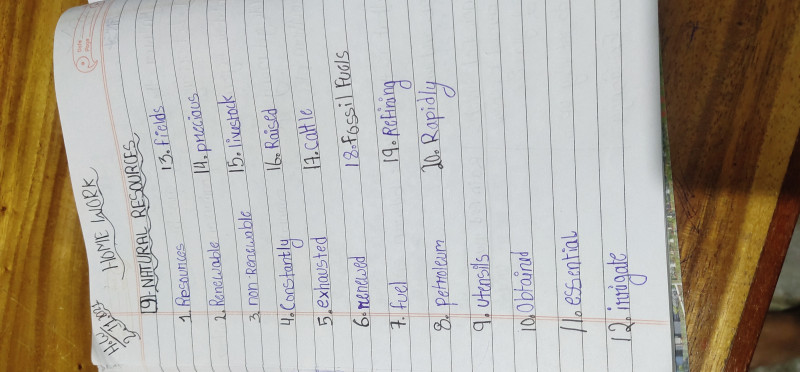 HOME WORK
L9. NATURAL RESOURCES
1. Resources
2. Renewable
3. non-Renewable
4. Constantly
5. exhausted
6. renewed
7. fuel
8. petroleum
9. utensils
10. Obtained
11. essential
12. irrigate
13. fields
14. precious
15. livestock
16. Raised
17. cattle
18. Fossil Fuels
19. Refining
20. Rapidly